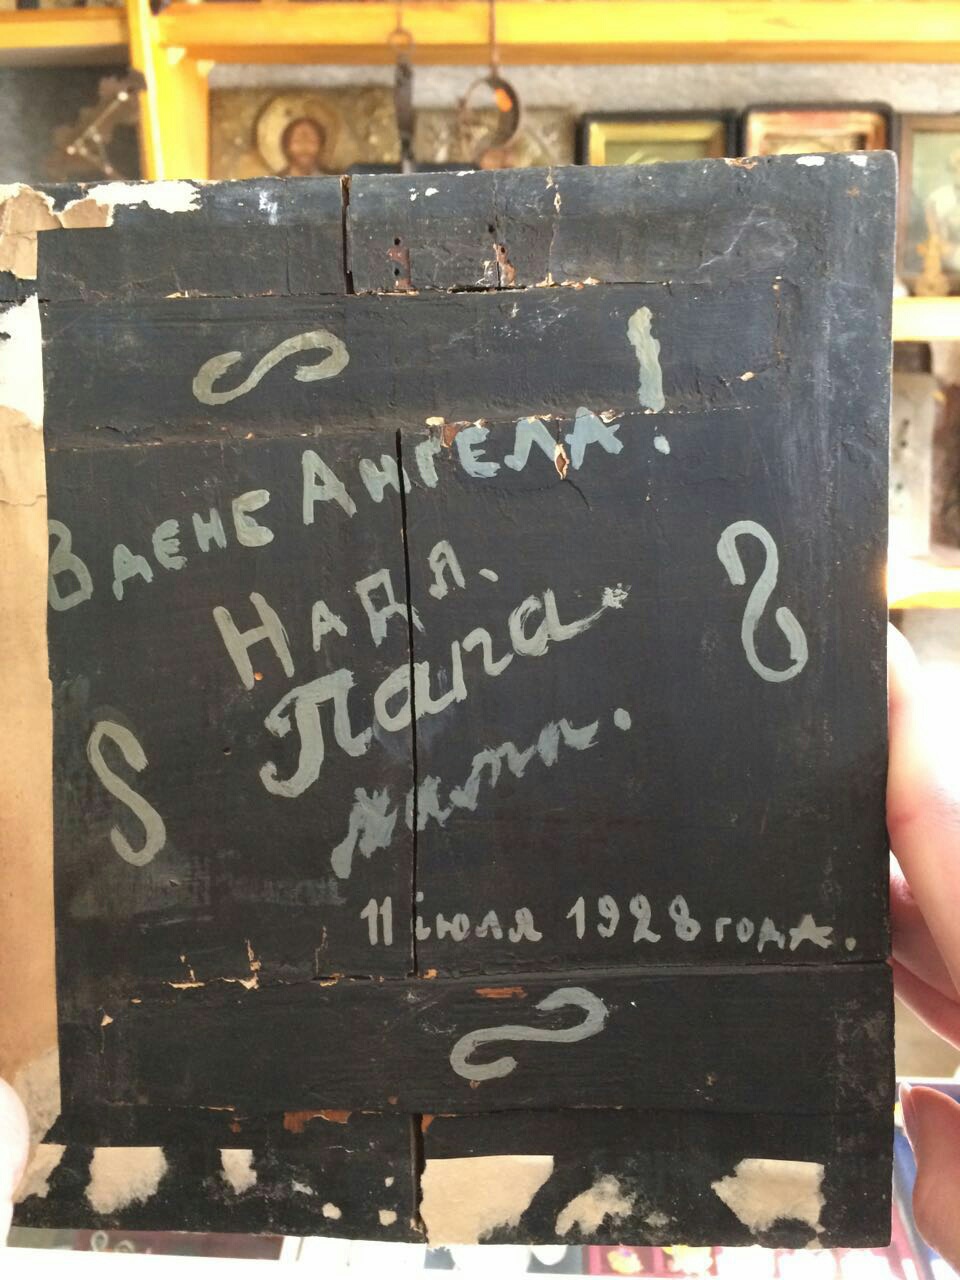 Вдене Ангела!
Надя.
Папа
мама.
11 іюля 1928 года.